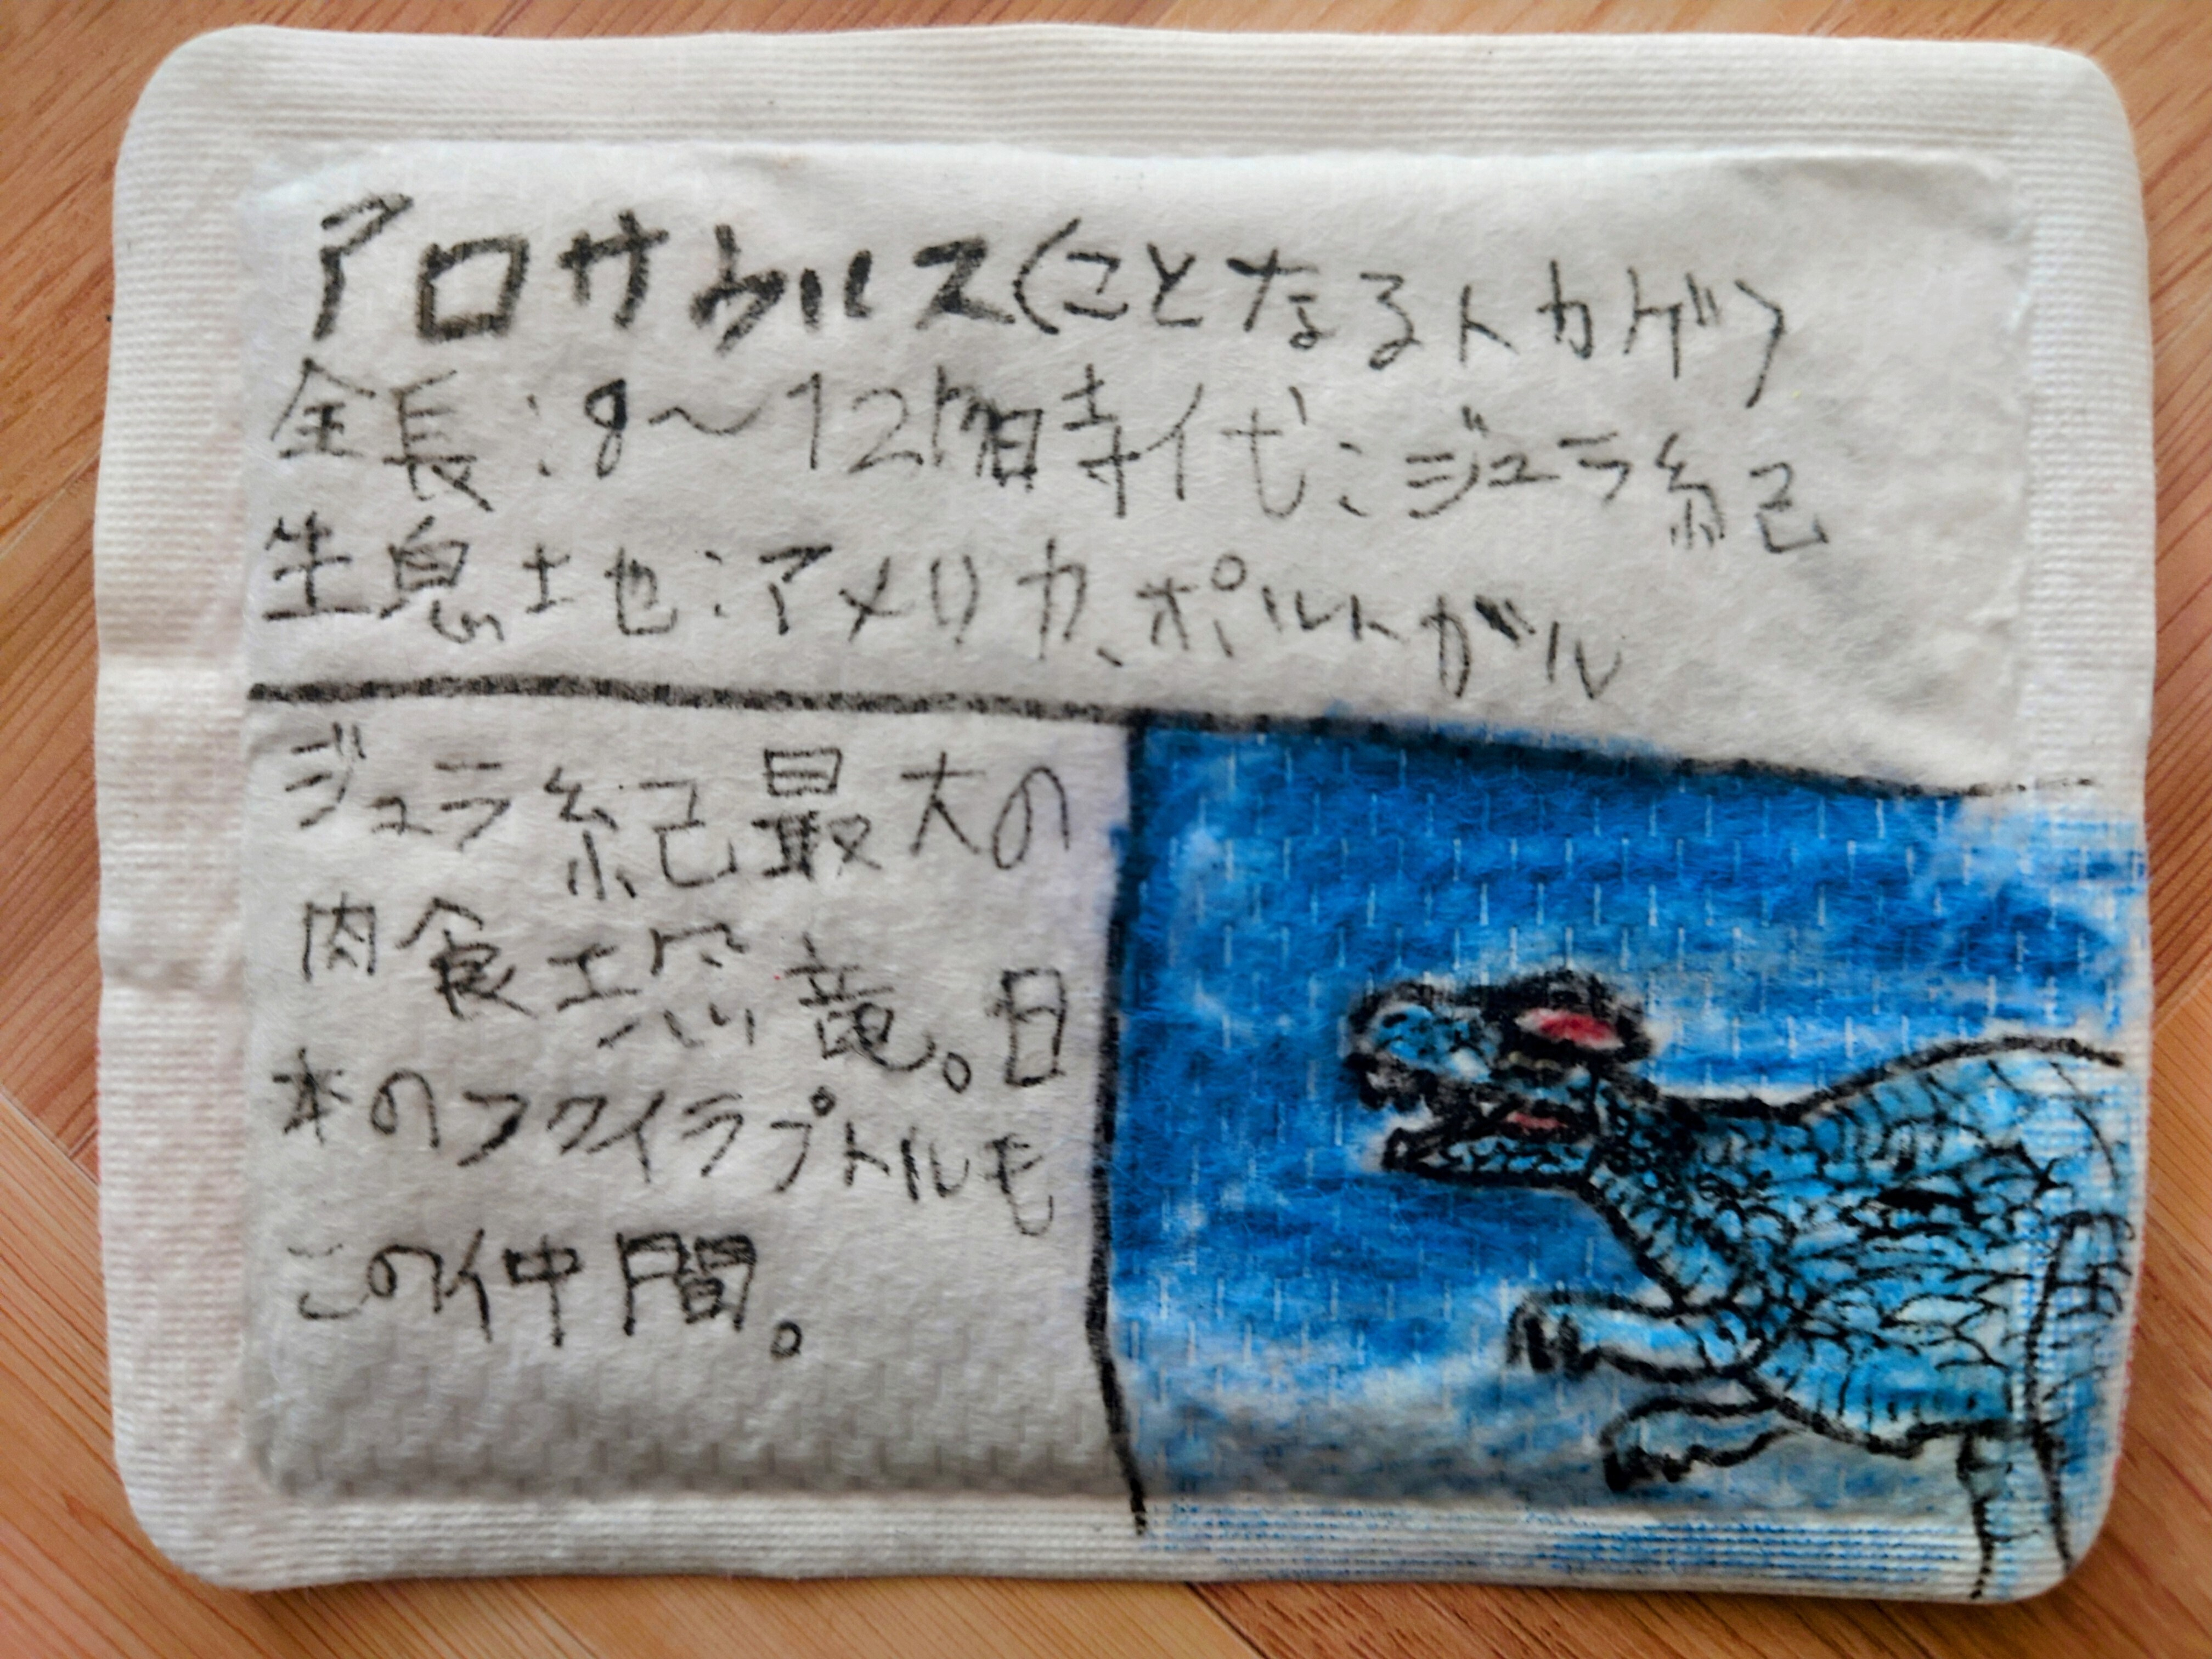 アロサウルス(ことなるトカゲ)
全長:8〜12m時代:ジュラ紀
生息地:アメリカ、ポルトガル
ジュラ紀最大の
肉食恐竜。日
本のフクイラプトルも
この仲間。